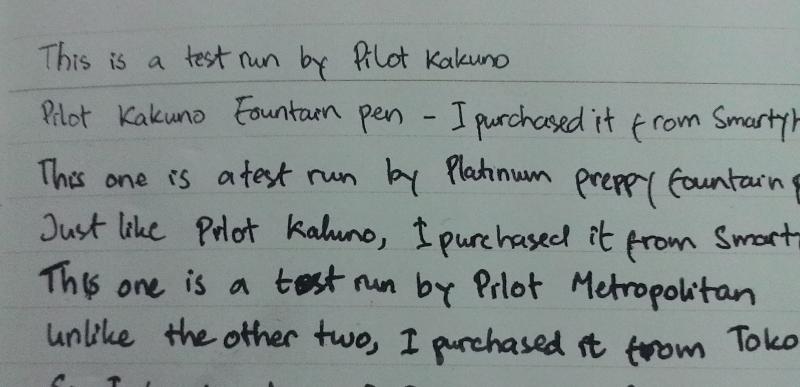 This is a test run by Pilot Kakuno
Pilot Kakuno Fountain pen - I purchased it from Smarty
This one is a test run by Platinum preppy fountain
Just like Pilot Kakuno, I purchased it from Smart
This one is a test run by Pilot Metropolitan
Unlike the other two, I purchased it from Toko